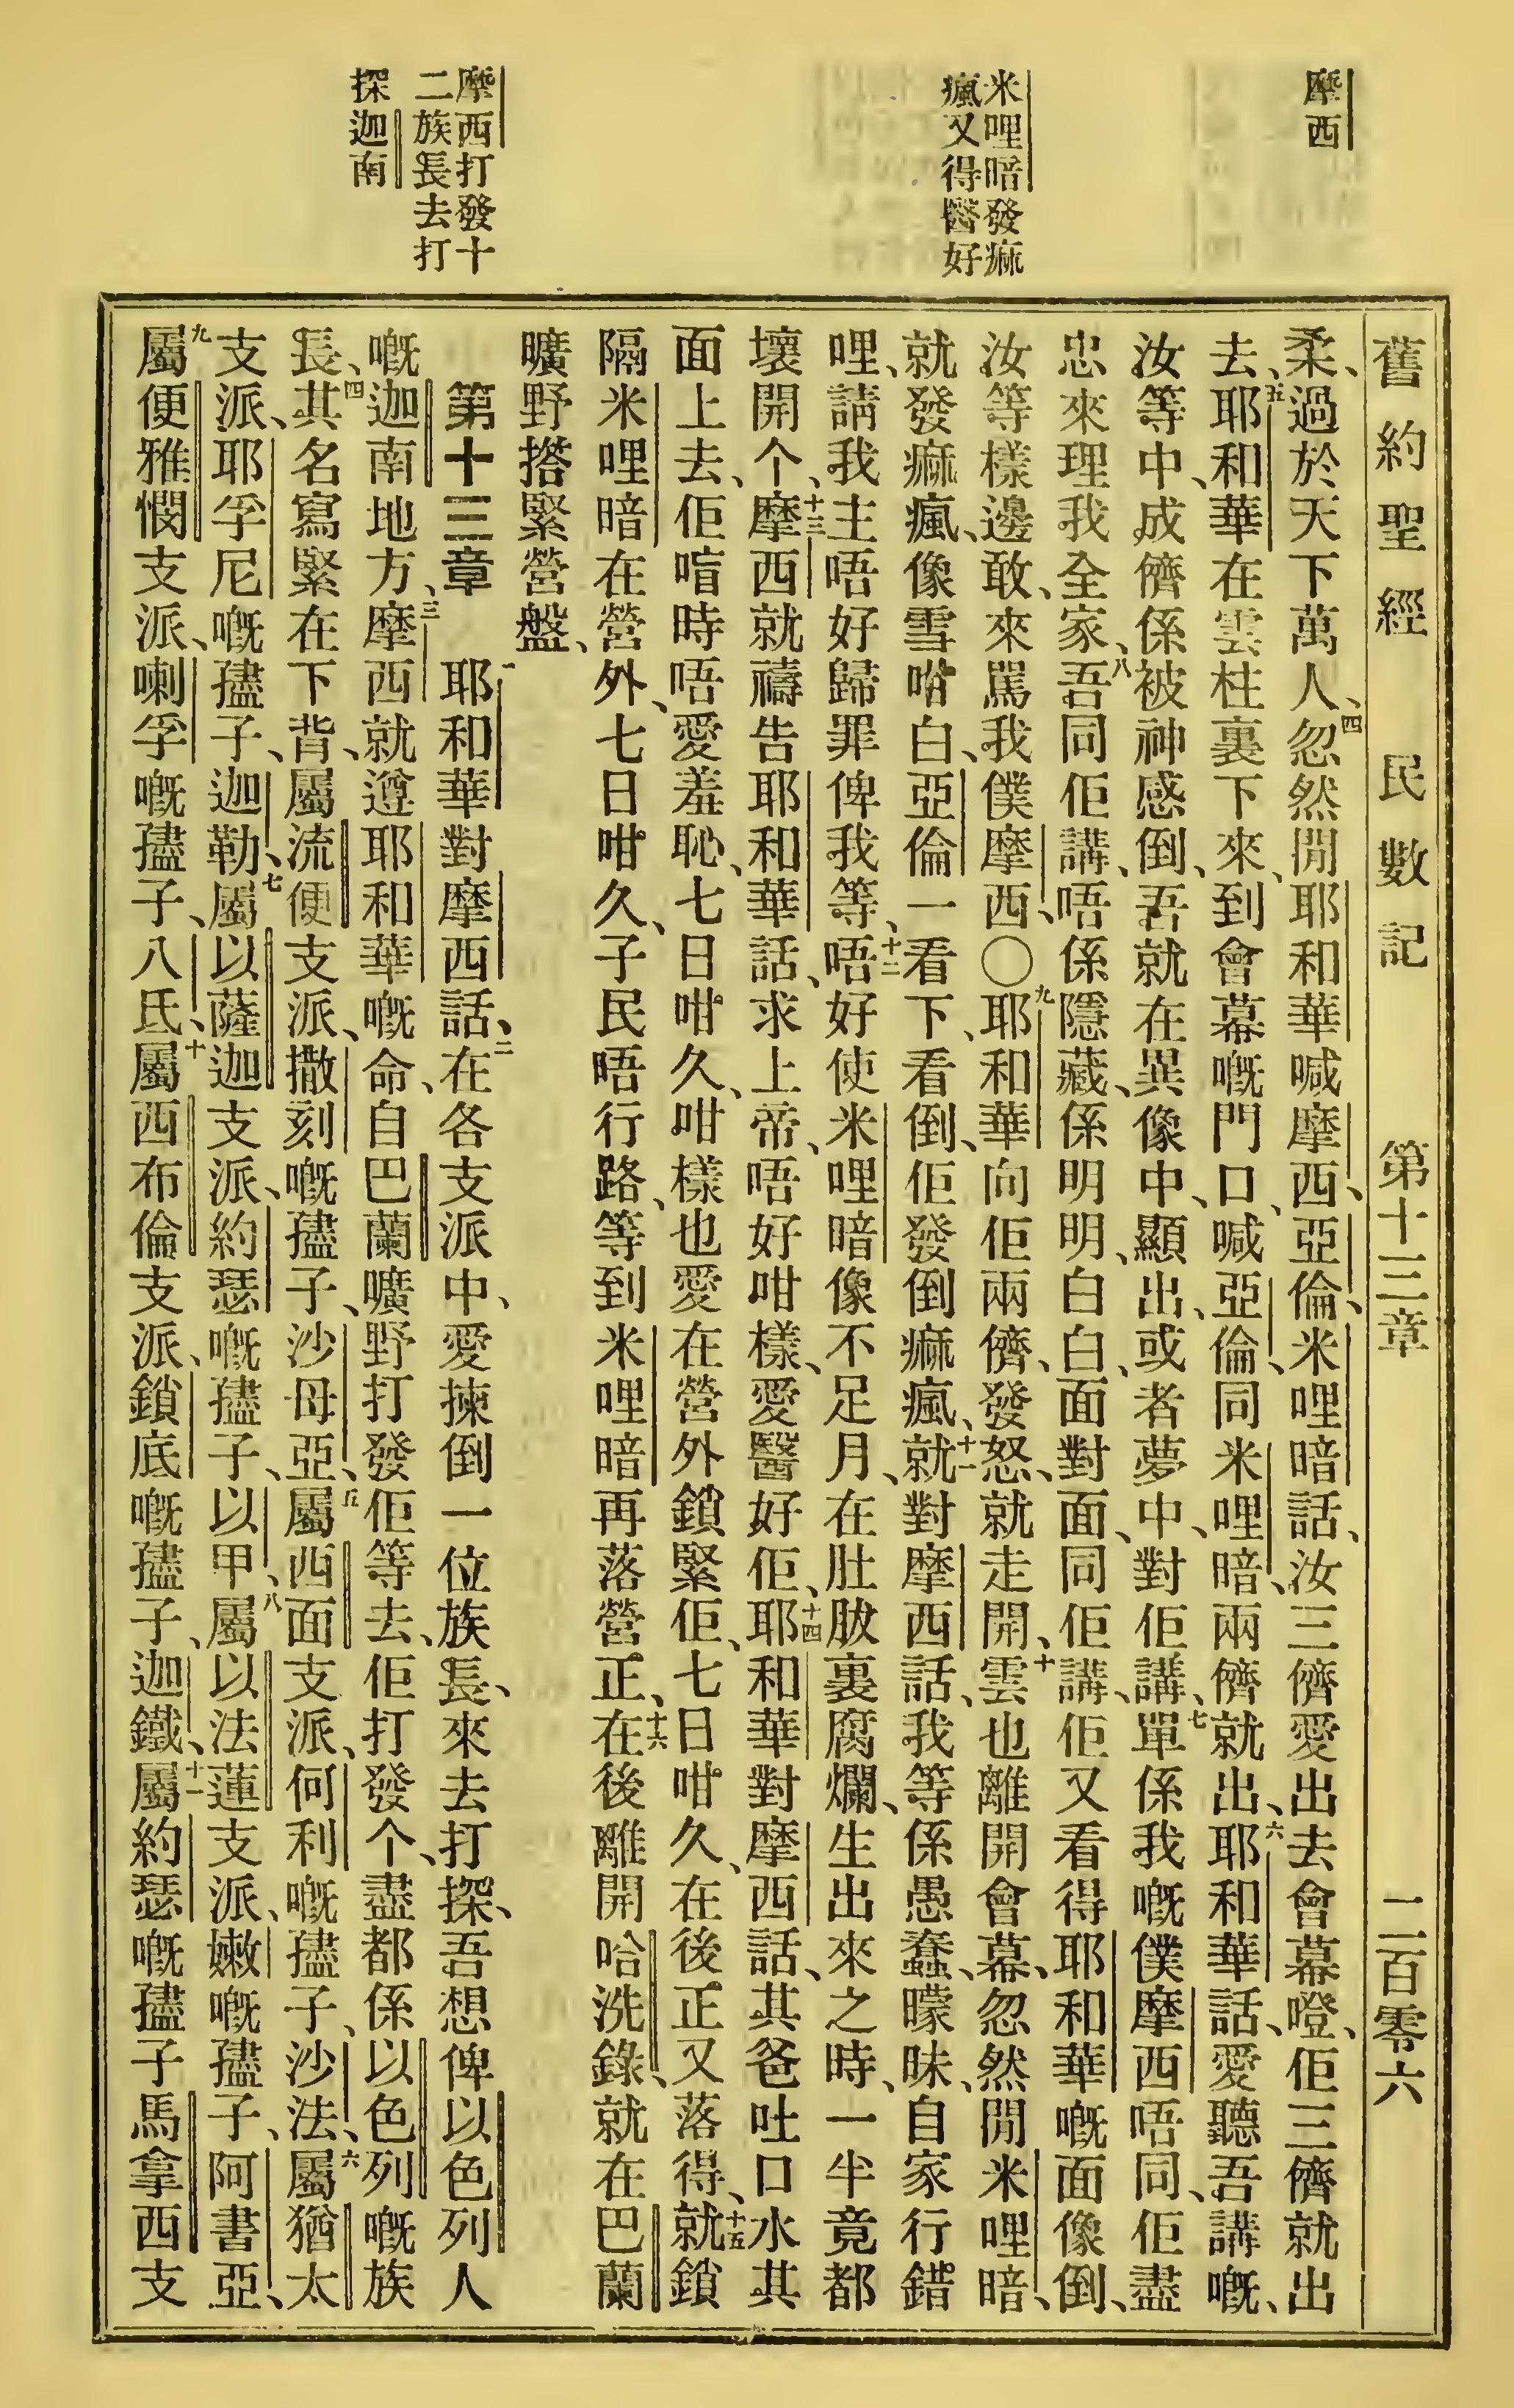 摩西
米哩暗發痲
瘋又得醫好
摩西打發十
二族長去打
探迦南
舊約聖經 民數記 第十三章 二百零六
柔、過於天下萬人、四忽然間耶和華喊摩西、亞倫、米哩暗話、汝三儕愛出去會幕嶝、佢三儕就出
去、五耶和華在雲柱裏下來、到會幕嘅門口、喊亞倫、同米哩暗、兩儕就出、六耶和華話、愛聽吾講嘅、
汝等中、成儕係被神感倒、吾就在異像中、顯出、或者夢中、對佢講、七單係我嘅僕摩西唔同、佢盡
忠來理我全家、八吾同佢講、唔係隱藏、係明明、白白、面對面、同佢講、佢又看得耶和華嘅面像倒、
汝等樣邊敢、來罵我僕摩西、〇九耶和華向佢兩儕、發怒、就走開、十雲也離開會幕、忽然間米哩暗、
就發痲瘋、像雪咁白、亞倫一看下、看倒、佢發倒痲瘋、十一就對摩西話、我等係愚蠢、曚昧、自家行錯
哩、請我主唔好歸罪俾我等、十二唔好使米哩暗像不足月、在肚胈裏腐爛、生出來之時、一半竟都
壞開个、十三摩西就禱告耶和華話、求上帝、唔好咁樣、愛醫好佢、十四耶和華對摩西話、其爸吐口水其
面上去、佢喑時唔愛羞恥、七日咁久、咁樣也愛在營外鎖緊佢、七日咁久、在後正又落得、十五就鎖
隔米哩暗在營外、七日咁久、子民唔行路、等到米哩暗再落營正、十六在後離開哈洗錄、就在巴蘭
曠野撘緊營盤、
第十三章 一耶和華對摩西話、二在各支派中、愛揀倒一位族長、來去打探、吾想俾以色列人
嘅迦南地方、三摩西就遵耶和華嘅命、自巴蘭曠野打發佢等去、佢打發个、盡都係以色列嘅族
長、四其名寫緊在下背、屬流便支派、撒刻嘅孻子、沙母亞、五屬西面支派、何利嘅孻子、沙法、六屬猶太
支派、耶孚尼嘅孻子、迦勒、七屬以薩迦支派、約瑟嘅孻子、以甲、八屬以法蓮支派、嫩嘅孻子、阿書亞、
九屬便雅憫支派、喇孚嘅孻子、八氐、十屬西布倫支派、鎖底嘅孻子、迦鐵、十一屬約瑟嘅孻子馬拿西支